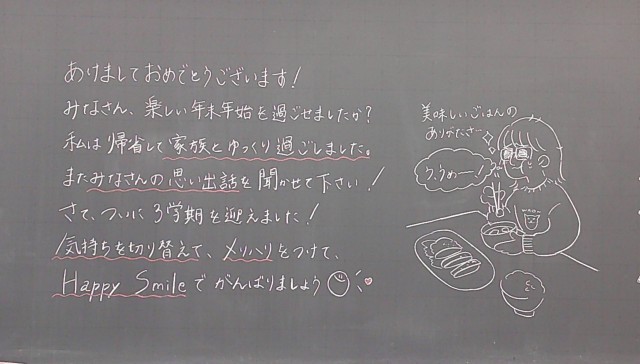 あけましておめでとうございます！
みなさん、楽しい年末年始を過ごせましたか？
私は帰省して家族とゆっくり過ごしました。
またみなさんの思い出話を聞かせて下さい！
さて、ついに3学期を迎えました！
気持ちを切り替えて、メリハリをつけて、
Happy Smileでがんばりましょう
美味しいごはんの
ありがたさ…
う、うめー！